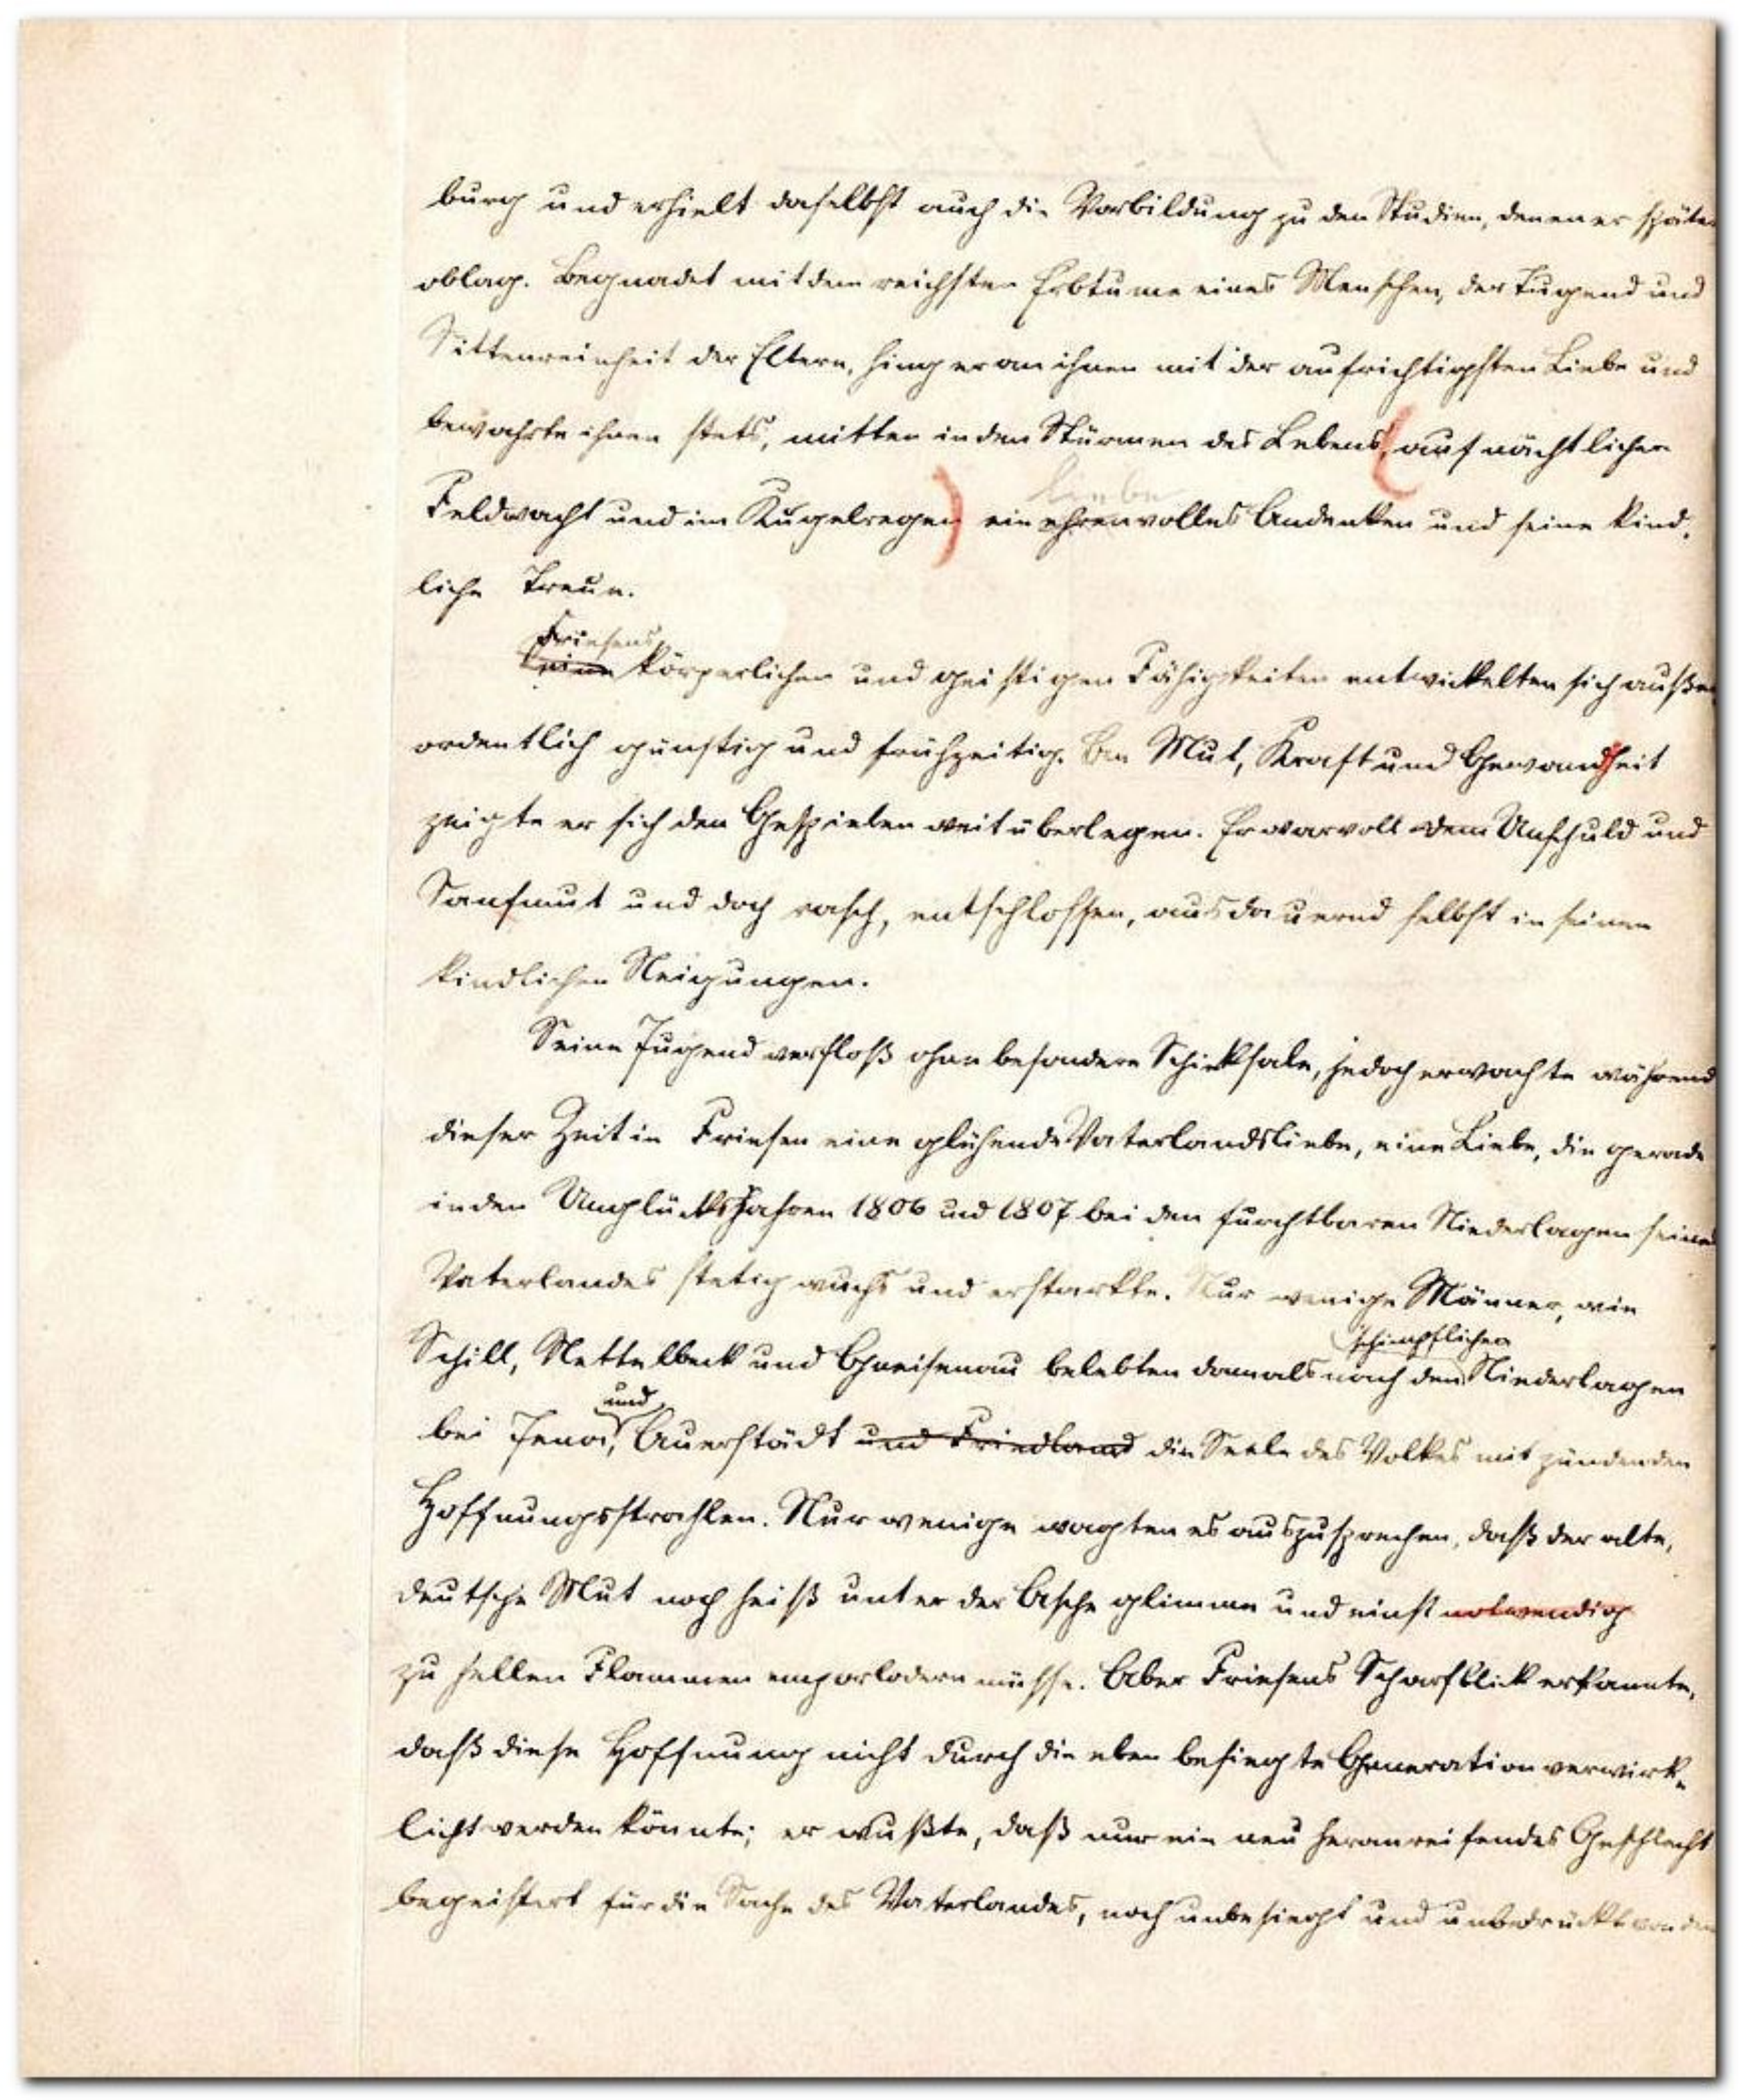 burg und erhielt daselbst auch die Vorbildung zu den Studien, denen er später
oblag. Begnadet mit dem reichsten Erbtume eines Menschen, der Tugend und
Sittenreinheit der Eltern, hing er an ihnen mit der aufrichtigsten Liebe und
bewahrte ihnen stets, mitten in den Stürmen des Lebens, (auf nächtlicher
liebe
Feldwacht und im Kugelregen) ein ehrenvolles Andenken und seine kind-
liche Treue.
Friesens
Seine körperlichen und geistigen Fähigkeiten entwickelten sich außer
ordentlich günstig und frühzeitig. An Mut, Kraft und Gewandheit
zeigte er sich den Gespielen weit überlegen. Er war voll dem Unschuld und
Sanfmut und doch rasch, entschlossen, ausdauernd selbst in seinen
kindlichen Neigungen.
Seine Jugend verfloß ohne besondere Schicksale, jedoch erwachte während
dieser Zeit in Friesen eine glühende Vaterlandsliebe, eine Liebe, die gerade
in den Unglücksjahren 1806 und 1807 bei den furchtbaren Niederlagen seines
Vaterlandes stetig wuchs und erstarkte. Nur wenige Männer, wie
schimpflichen
Schill, Nettelbeck und Gneisenau belebten damals nach den Niederlagen
und
bei Jena, Auerstädt und Friedland die Seele des Volkes mit zündenden
Hoffnungsstrahlen. Nur wenige wagten es auszusprechen, daß der alte,
deutsche Mut noch heiß unter der Asche glimme und einst notwendig
zu hellen Flammen emporlodern müsse. Aber Friesens Scharfblick erkannte,
daß diese Hoffnung nicht durch die eben besiegte Generation verwirk-
licht werden könnte; er wußte, daß nur ein neu heranreifendes Geschlecht
begeistert für die Sache des Vaterlandes, noch unbesiegt und unbedrückt von den